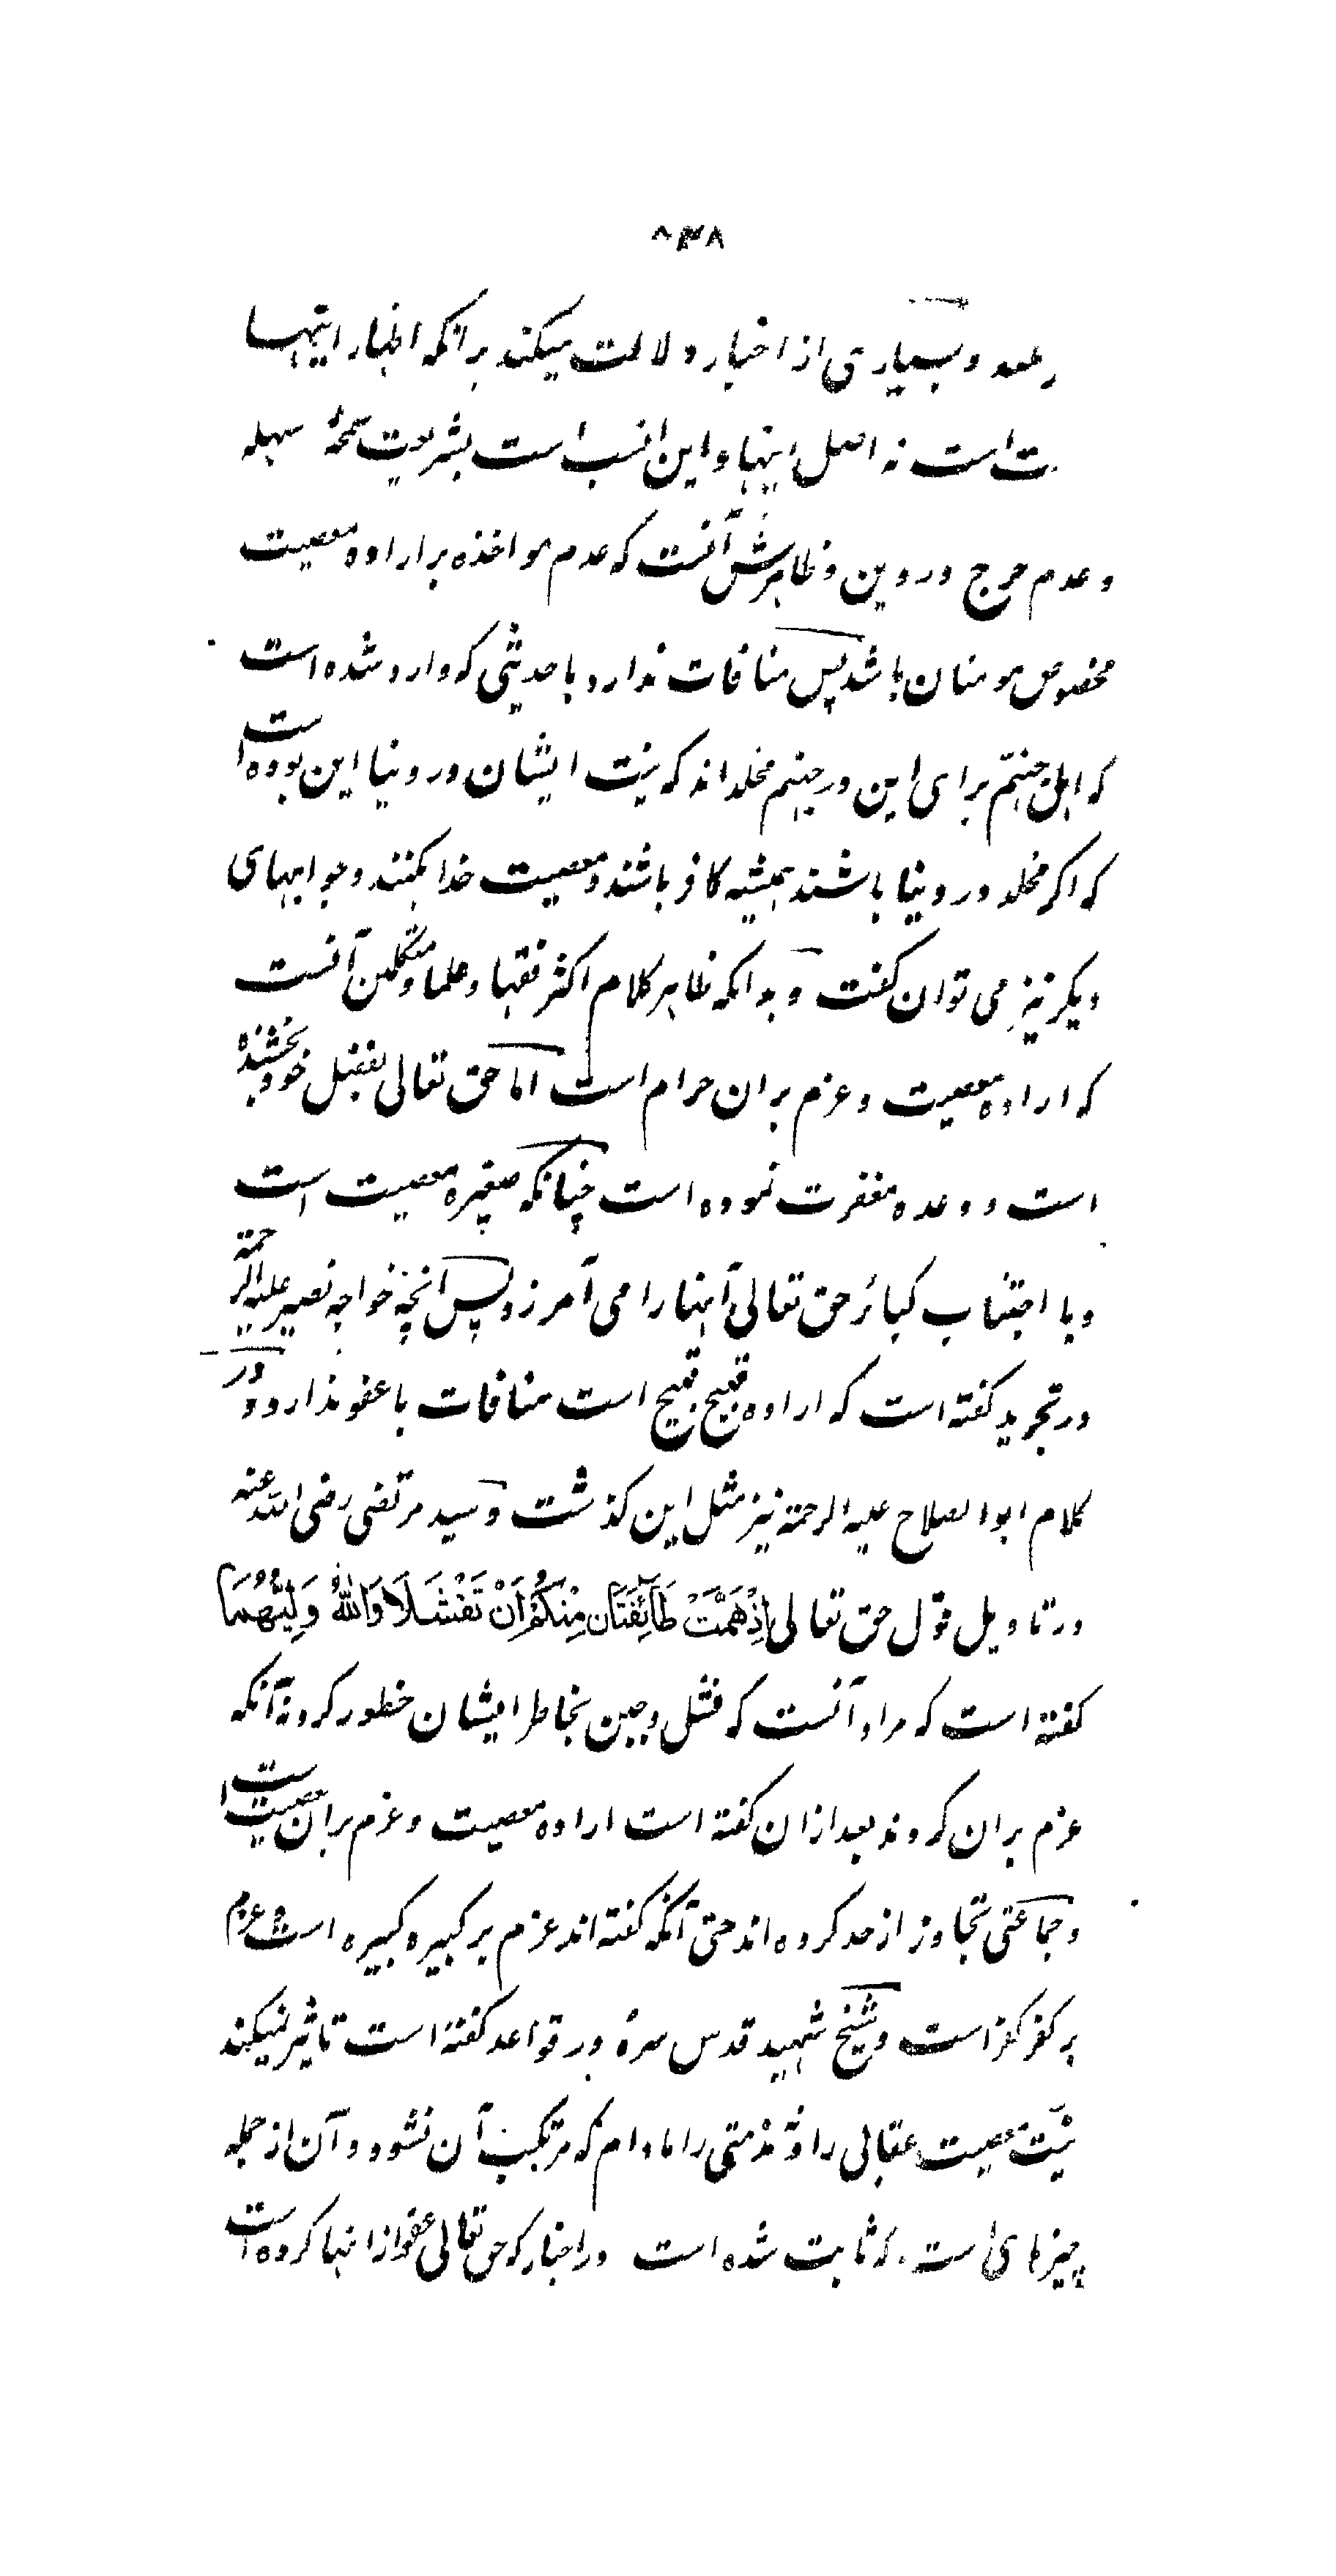 ۸۳۸
و بسیاری از اخبار دلالت میکند برانکه اظهار اینها
است نه اصل اینها و این انسب است بشریعت سمحهٔ سهله
و عدم حرج در دین و ظاهرش آنست که عدم مواخذه بر اراده معصیت
مخصوص مومنان باشد پس منافات ندارد با حدیثی که وارد شده است
که اهل جهنم برای این در جهنم مخلداند که نیت ایشان در دنیا این بوده است
که اکر مخلد در دنیا باشند همیشه کافر باشند و معصیت خدا بکنند و جوابهای
دیکر نیز می توان کفت و بدانکه ظاهر کلام اکثر فقها و علما و متکلمین آنست
که اراده معصیت و عزم بران حرام است اما حق تعالی بفضل خود بخشنده
است و وعده مغفرت نموده است چنانکه صغیره معصیت است
و با اجتناب کبائر حق تعالی آنها را می آمرزد پس انچه خواجه نصیر علیه الرحمة
در تجرید کفته است که اراده قبیح قبیح است منافات با عفو ندارد و در
کلام ابوالصلاح علیه الرحمة نیز مثل این کذشت و سید مرتضی رضی الله عنه
در تاویل قول حق تعالی اِذْ هَمَّتْ طَآئِفَتَانِ مِنْكُمْ اَنْ تَفْشَلَا وَاللّٰهُ وَلِیُّهُمَا
کفته است که مراد آنست که فشل و جبن بخاطر ایشان خطور کرد نه آنکه
عزم بران کردند بعد ازان کفته است اراده معصیت و عزم بران معصیت است
و جماعتی تجاوز از حد کرده اند حتی آنکه کفته اند عزم بر کبیره کبیره است و عزم
بر کفر کفر است و شیخ شهید قدس سرهٔ در قواعد کفته است تاثیر نمیکند
نیّت معصیت عقابی را و نه ذمتی را مادام که مرتکب آن نشود و آن از جمله
چیزهای است که ثابت شده است در اخبار که حق تعالی عفو از انها کرده است